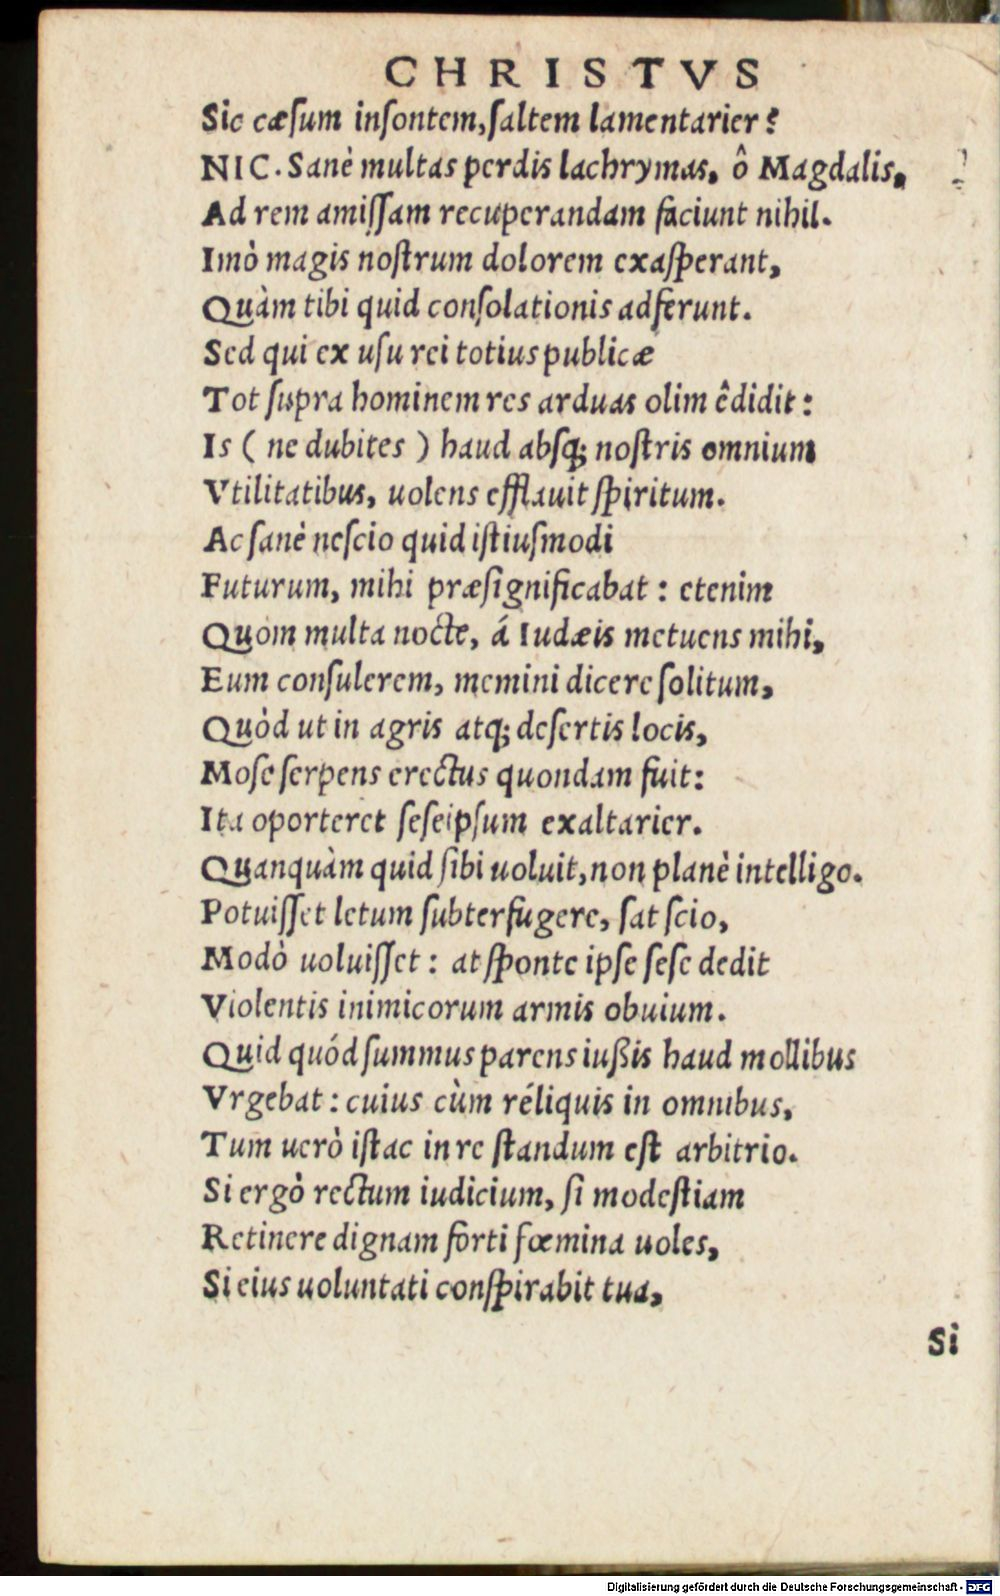 CHRISTVS
Sic cæſum inſontem,ſaltem lamentarier?
NIC. Sanè multas perdis lachrymas, ô Magdalis,
Ad rem amiſſam recuperandam faciunt nihil.
Imò magis noſtrum dolorem exaſperant,
Quàm tibi quid conſolationis adferunt.
Sed qui ex uſu rei totius publicæ
Tot ſupra hominem res arduas olim êdidit:
Is ( ne dubites ) haud abſq; noſtris omnium
Vtilitatibus, uolens efflauit ſpiritum.
Ac ſanè neſcio quid iſtiuſmodi
Futurum, mihi præſignificabat : etenim
Quom multa nocte, á Iudæis metuens mihi,
Eum conſulerem, memini dicere ſolitum,
Quòd ut in agris atq; deſertis locis,
Moſe ſerpens erectus quondam fuit:
Ita oporteret ſeſeipſum exaltarier.
Quanquàm quid ſibi uoluit,non planè intelligo.
Potuiſſet letum ſubterfugere, ſat ſcio,
Modò uoluiſſet : at ſponte ipſe ſeſe dedit
Violentis inimicorum armis obuium.
Quid quód ſummus parens iußis haud mollibus
Vrgebat : cuius cùm réliquis in omnibus,
Tum uerò iſtac in re ſtandum eſt arbitrio.
Si ergò rectum iudicium, ſi modeſtiam
Retinere dignam forti fœmina uoles,
Si eius uoluntati conſpirabit tua,
Si
Digitalisierung gefördert durch die Deutsche Forschungsgemeinschaft - DFG